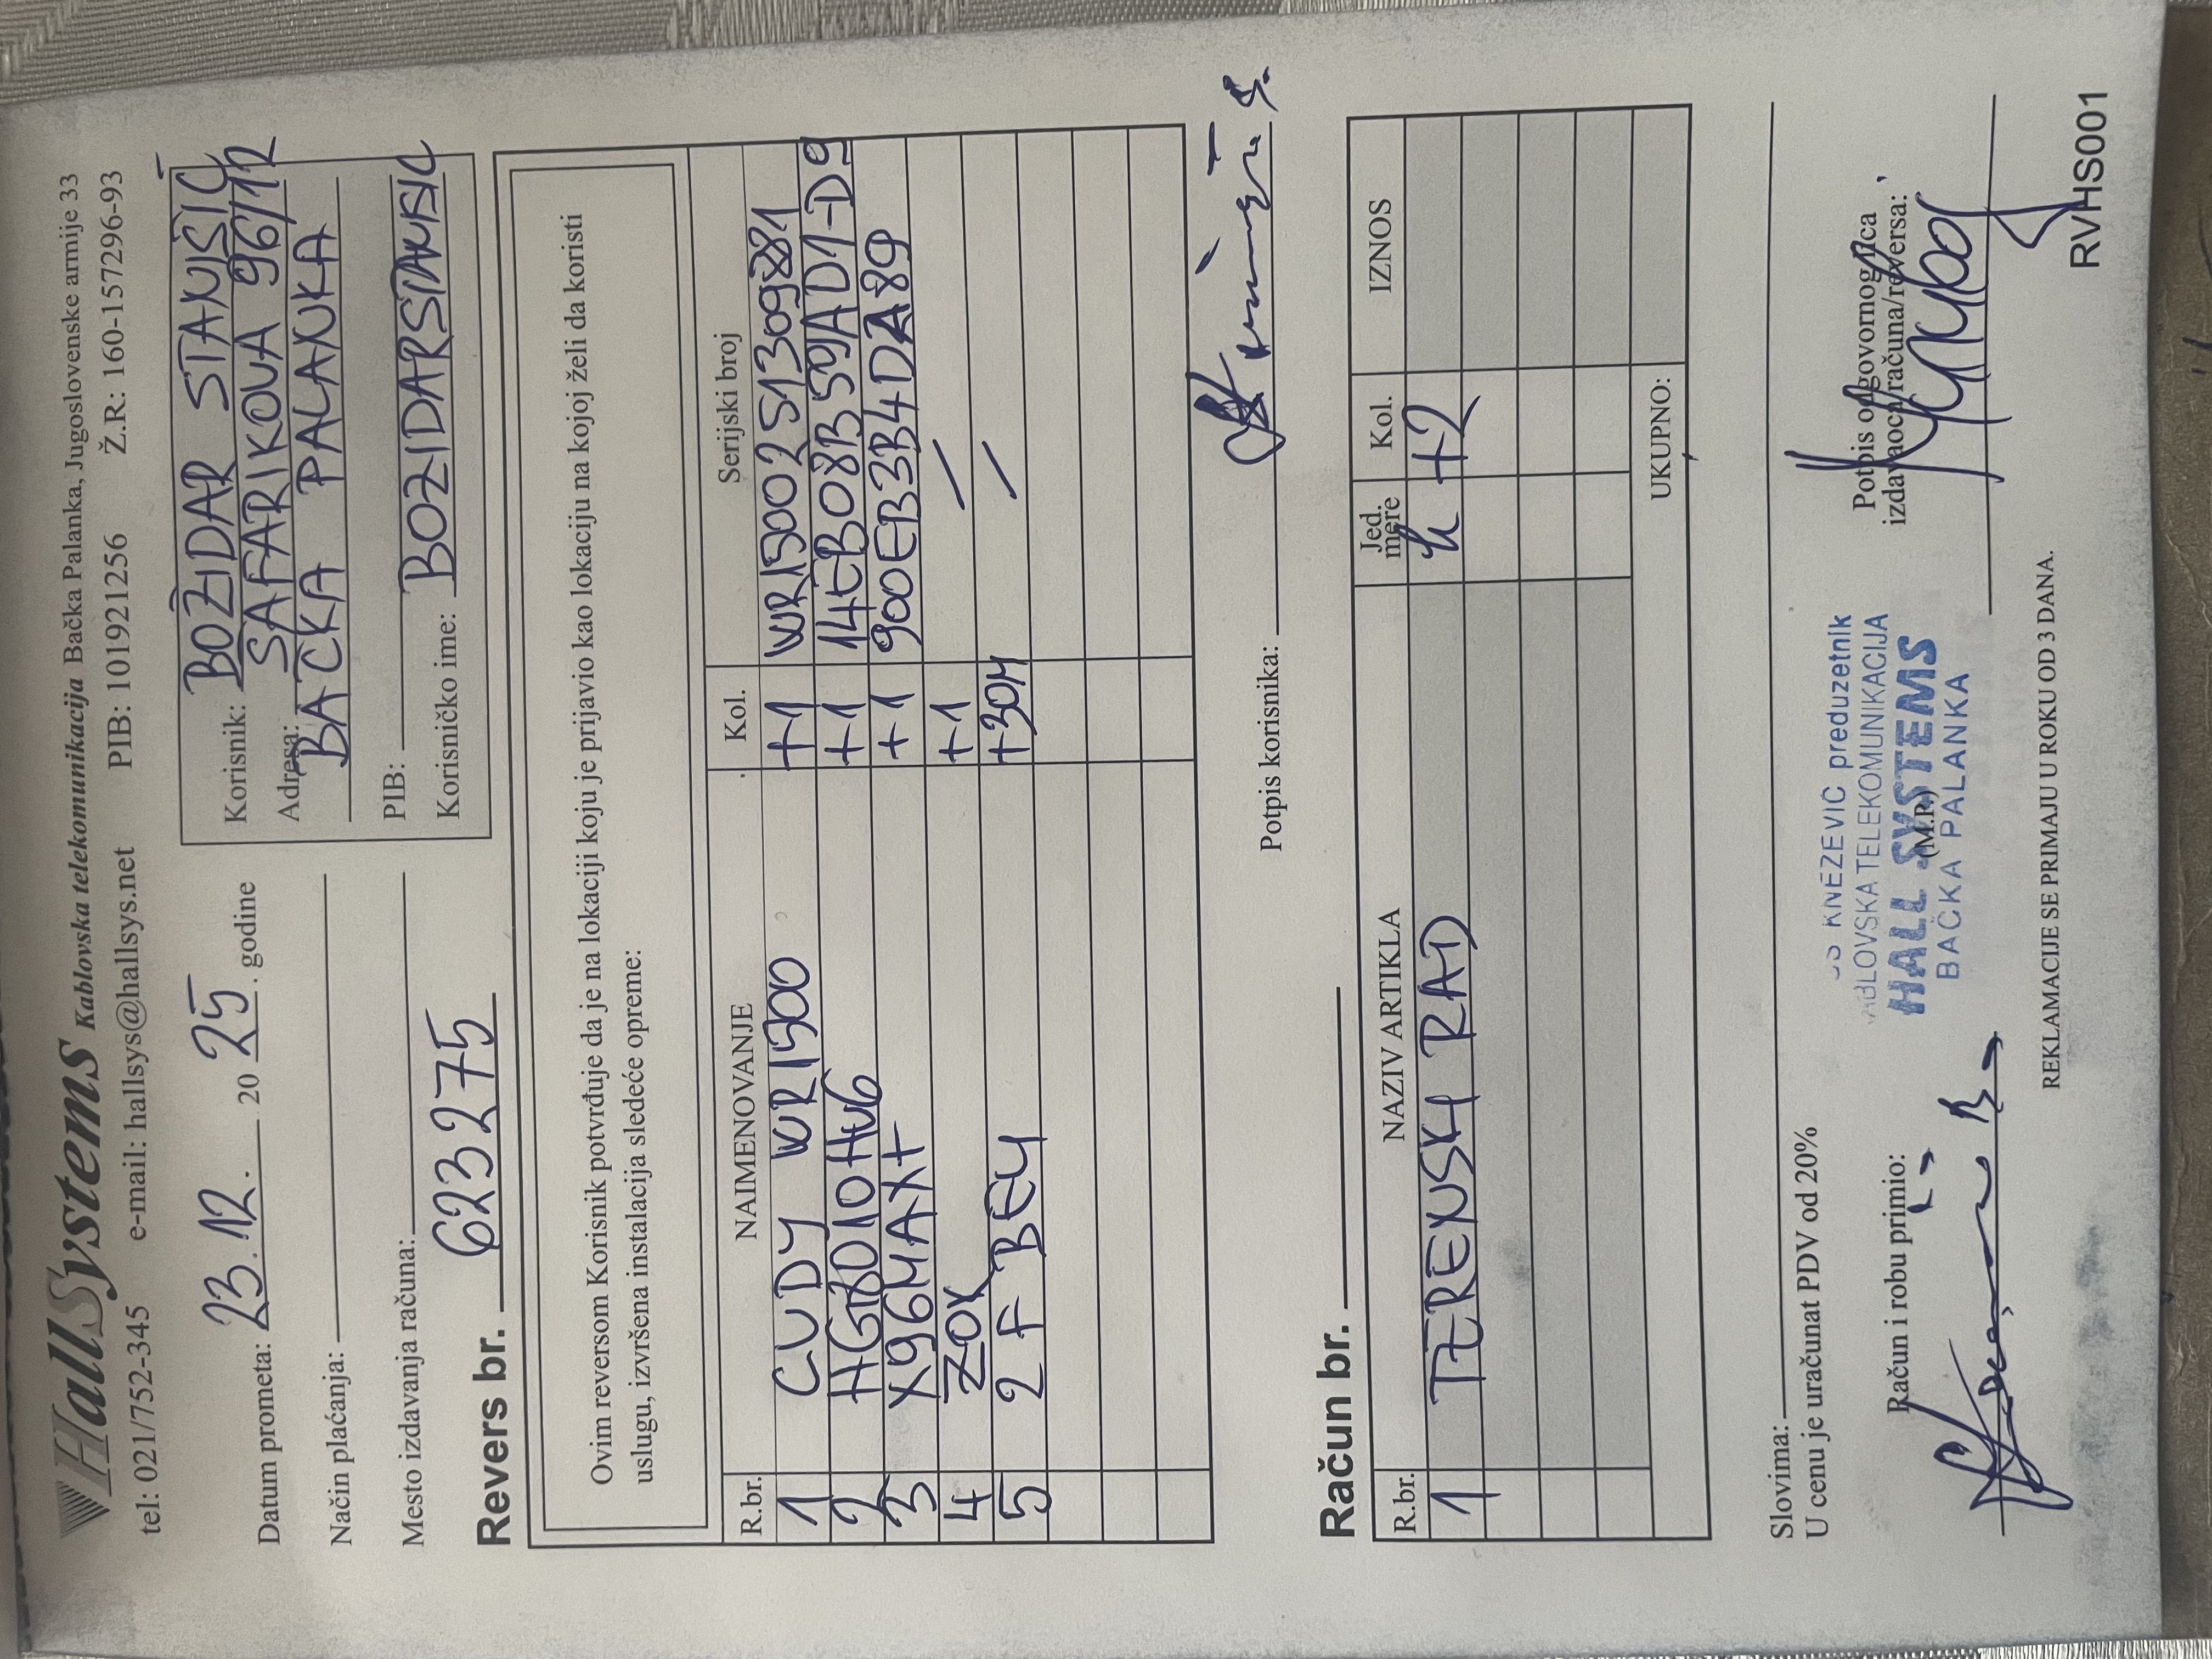 HallSystems Kablovska telekomunikacija Bačka Palanka, Jugoslovenske armije 33
tel: 021/752-345 e-mail: hallsys@hallsys.net PIB: 101921256 Ž.R: 160-157296-93
Datum prometa: 23.12. 2025. godine
Način plaćanja:
Mesto izdavanja računa:
Korisnik: BOŽIDAR STANIŠIĆ
Adresa: SAFARIKOVA 96/12
BAČKA PALANKA
PIB:
Korisničko ime: BOZIDARSTANISIC
Revers br. 623275
Ovim reversom Korisnik potvrđuje da je na lokaciji koju je prijavio kao lokaciju na kojoj želi da koristi
uslugu, izvršena instalacija sledeće opreme:
R.br. NAIMENOVANJE Kol. Serijski broj
1 CUDY WR1300 +1 WR1300251309881
2 HG8010Hv6 +1 14EB08B59AD1-D9
3 X96MAX+ +1 900EB3B4DA89
4 ZOX +1 /
5 2F BELI +30M /
Potpis korisnika:
Račun br.
R.br. NAZIV ARTIKLA Jed. mere Kol. IZNOS
1 TERENSKI RAD h +2
UKUPNO:
Slovima:
U cenu je uračunat PDV od 20%
Račun i robu primio:
KNEZEVIĆ preduzetnik
KABLOVSKA TELEKOMUNIKACIJA
HALL SYSTEMS
(M.P.)
BAČKA PALANKA
Potpis odgovornog lica
izdavaoca računa/reversa:
REKLAMACIJE SE PRIMAJU U ROKU OD 3 DANA.
RVHS001